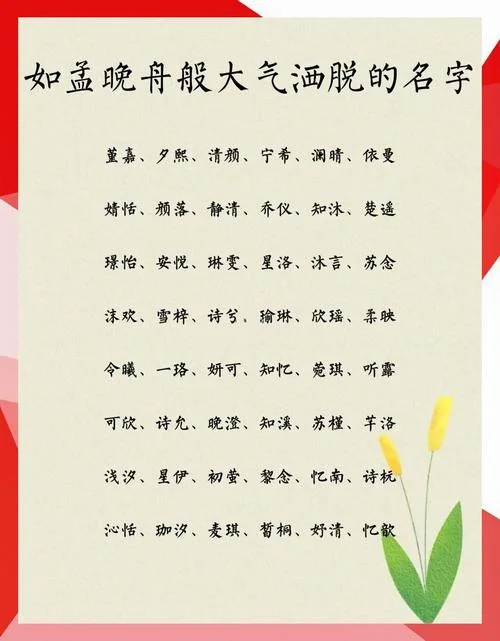 如孟晚舟般大气洒脱的名字
堇嘉、夕熙、清颜、宁希、澜晴、依曼
婧恬、颜落、静清、乔仪、知沐、楚遥
璟怡、安悦、琳雯、星洛、沐言、苏念
沫欢、雪梓、诗兮、瑜琳、欣瑶、柔映
令曦、一珞、妍可、知忆、菀琪、听露
可欣、诗允、晚澄、知溪、苏槿、芊洛
浅汐、星伊、初萤、黎念、忆南、诗杬
沁恬、珈汐、麦琪、皙桐、妤清、忆歆